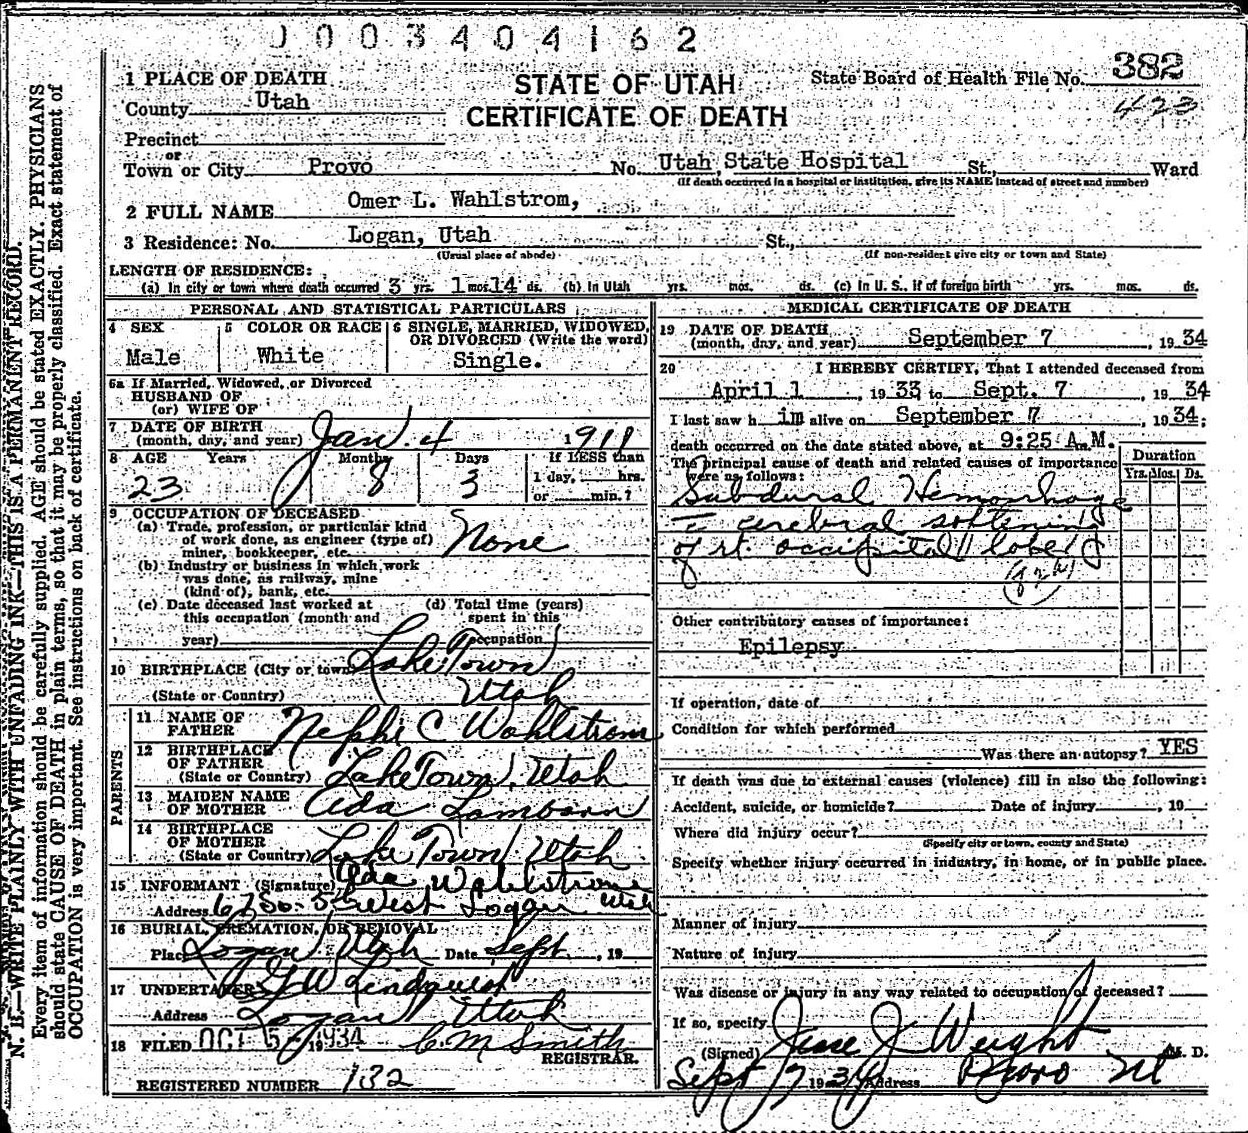 1003404162
1 PLACE OF DEATH
STATE OF UTAH
CERTIFICATE OF DEATH
State Board of Health File No. 382
423
County Utah
Precinct
or
Town or City Provo No. Utah State Hospital St., Ward
(If death occurred in a hospital or institution, give its NAME instead of street and number)
2 FULL NAME Omer L. Wahlstrom,
3 Residence: No. Logan, Utah St.,
(Usual place of abode) (If non-resident give city or town and State)
LENGTH OF RESIDENCE:
(a) In city or town where death occurred 3 yrs. 1 mos. 14 ds. (b) In Utah yrs. mos. ds. (c) In U. S., if of foreign birth yrs. mos. ds.
PERSONAL AND STATISTICAL PARTICULARS
4 SEX Male
5 COLOR OR RACE White
6 SINGLE, MARRIED, WIDOWED, OR DIVORCED (Write the word) Single.
6a If Married, Widowed, or Divorced
HUSBAND OF
(or) WIFE OF
7 DATE OF BIRTH
(month, day, and year) Jan. 4 1911
8 AGE Years Months Days If LESS than
23 8 3 1 day, hrs.
or min.?
9 OCCUPATION OF DECEASED
(a) Trade, profession, or particular kind
of work done, as engineer (type of)
miner, bookkeeper, etc. None
(b) Industry or business in which work
was done, as railway, mine
(kind of), bank, etc.
(c) Date deceased last worked at
this occupation (month and
year)
(d) Total time (years)
spent in this
occupation
10 BIRTHPLACE (City or town) Lake Town
(State or Country) Utah
PARENTS
11 NAME OF
FATHER Nephi C Wahlstrom
12 BIRTHPLACE
OF FATHER
(State or Country) Lake Town, Utah
13 MAIDEN NAME
OF MOTHER Ada Lamborn
14 BIRTHPLACE
OF MOTHER
(State or Country) Lake Town Utah
15 INFORMANT (Signature) Ada Wahlstrom
Address 67 So. 5 West Logan Utah
16 BURIAL, CREMATION, OR REMOVAL
Place Logan Utah Date Sept. , 19
17 UNDERTAKER W Lindquist
Address Logan Utah
18 FILED OCT 5 1934 C. M Smith
REGISTRAR.
REGISTERED NUMBER 132
MEDICAL CERTIFICATE OF DEATH
19 DATE OF DEATH
(month, day, and year) September 7 , 1934
20 I HEREBY CERTIFY, That I attended deceased from
April 1 , 1933 to Sept. 7 , 1934
I last saw h im alive on September 7 , 1934;
death occurred on the date stated above, at 9:25 A.M.
The principal cause of death and related causes of importance
were as follows:
Duration
Yrs. Mos. Ds.
Subdural Hemorrhage
cerebral softening
of rt. occipital lobe
Other contributory causes of importance:
Epilepsy
If operation, date of
Condition for which performed
Was there an autopsy? YES
If death was due to external causes (violence) fill in also the following:
Accident, suicide, or homicide? Date of injury , 19
Where did injury occur?
(Specify city or town, county and State)
Specify whether injury occurred in industry, in home, or in public place.
Manner of injury
Nature of injury
Was disease or injury in any way related to occupation of deceased?
If so, specify
(Signed) Jesse J Weight M. D.
Sept 7 1934 Address Provo Ut
N. B.—WRITE PLAINLY WITH UNFADING INK—THIS IS A PERMANENT RECORD.
Every item of information should be carefully supplied. AGE should be stated EXACTLY. PHYSICIANS
should state CAUSE OF DEATH in plain terms, so that it may be properly classified. Exact statement of
OCCUPATION is very important. See instructions on back of certificate.